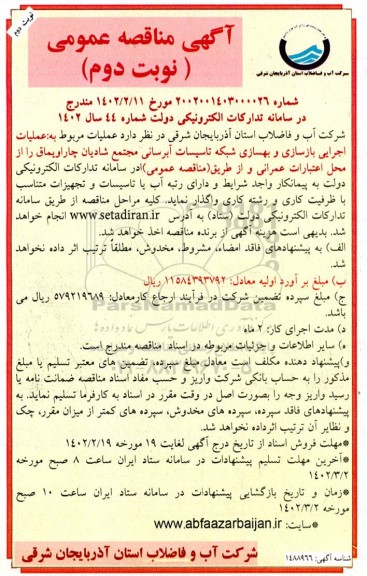 نوبت دوم
آگهی مناقصه عمومی
( نوبت دوم)
شرکت آب و فاضلاب استان آذربایجان شرقی
شماره ۲۰۰۲۰۰۱۴۰۳۰۰۰۰۲۶ مورخ ۱۴۰۲/۲/۱۱ مندرج
در سامانه تدارکات الکترونیکی دولت شماره ۴۴ سال ۱۴۰۲
شرکت آب و فاضلاب استان آذربایجان شرقی در نظر دارد عملیات مربوط به:عملیات
اجرایی بازسازی و بهسازی شبکه تاسیسات آبرسانی مجتمع شادیان چاراویماق را از
محل اعتبارات عمرانی و از طریق(مناقصه عمومی)ازدر سامانه تدارکات الکترونیکی
دولت به پیمانکار واجد شرایط و دارای رتبه آب یا تاسیسات و تجهیزات متناسب
با ظرفیت کاری و رشته کاری واگذار نماید. کلیه مراحل مناقصه از طریق سامانه
تدارکات الکترونیکی دولت (ستاد) به آدرس www.setadiran.ir انجام خواهد
شد. بدیهی است هزینه آگهی از برنده مناقصه اخذ خواهد شد.
الف) به پیشنهادهای فاقد امضاء، مشروط، مخدوش، مطلقاً ترتیب اثر داده نخواهد
شد.
ب) مبلغ بر آورد اولیه معادل: ۱۱۵۸۴۳۹۳۷۹۲ ریال
ج) مبلغ سپرده تضمین شرکت در فرآیند ارجاع کارمعادل: ۵۷۹۲۱۹۶۸۹ ریال می
باشد.
د) مدت اجرای کار: ۲ ماه
ه) سایر اطلاعات و جزئیات مربوطه در اسناد مناقصه مندرج است.
و)پیشنهاد دهنده مکلف است معادل مبلغ سپرده، تضمین های معتبر تسلیم یا مبلغ
مذکور را به حساب بانکی شرکت واریز و حسب مفاد اسناد مناقصه ضمانت نامه یا
رسید واریز وجه را بصورت اصل در وقت مقرر در اسناد به کارفرما تسلیم نماید. به
پیشنهادهای فاقد سپرده، سپرده های مخدوش، سپرده های کمتر از میزان مقرر، چک
و نظایر آن ترتیب اثرداده نخواهد شد.
*مهلت فروش اسناد از تاریخ درج آگهی لغایت ۱۹ مورخه ۱۴۰۲/۲/۱۹
*آخرین مهلت تسلیم پیشنهادات در سامانه ستاد ایران ساعت ۸ صبح مورخه
۱۴۰۲/۳/۲
*زمان و تاریخ بازگشایی پیشنهادات در سامانه ستاد ایران ساعت ۱۰ صبح
مورخه ۱۴۰۲/۳/۲
*سایت: www.abfaazarbaijan.ir
شرکت آب و فاضلاب استان آذربایجان شرقی
شناسه آگهی: ۱۴۸۸۹۶۶
ParsNamadData